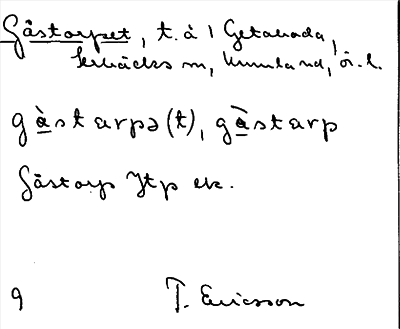 Gåstorpet, t. å 1 Getaboda,
Lerbäcks sn, Kumla hd, ö. l.
gàstarpə(t), gàstarp
Gåstorp Jtp ek.
9 T. Ericsson